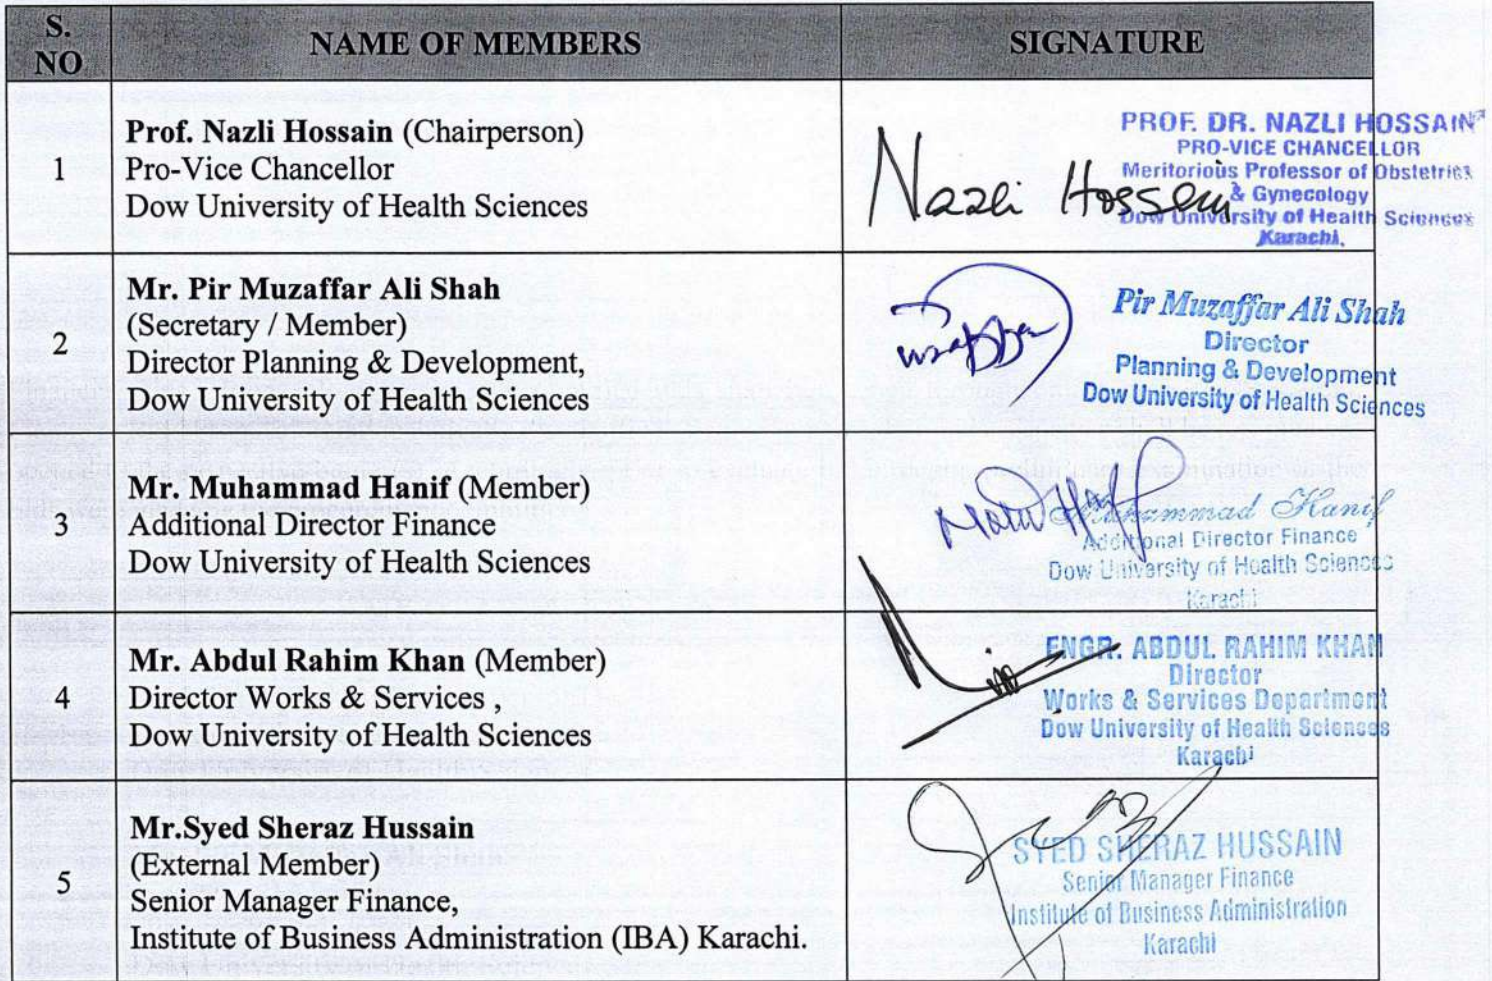 S. NO
NAME OF MEMBERS
SIGNATURE
1
Prof. Nazli Hossain (Chairperson)
Pro-Vice Chancellor
Dow University of Health Sciences
Nazli Hossein
PROF. DR. NAZLI HOSSAIN
PRO-VICE CHANCELLOR
Meritorious Professor of Obstetrics
& Gynecology
Dow University of Health Sciences
Karachi.
2
Mr. Pir Muzaffar Ali Shah
(Secretary / Member)
Director Planning & Development,
Dow University of Health Sciences
Pir Muzaffar Ali Shah
Director
Planning & Development
Dow University of Health Sciences
3
Mr. Muhammad Hanif (Member)
Additional Director Finance
Dow University of Health Sciences
Muhammad Hanif
Additional Director Finance
Dow University of Health Sciences
Karachi
4
Mr. Abdul Rahim Khan (Member)
Director Works & Services ,
Dow University of Health Sciences
ENGR. ABDUL RAHIM KHAN
Director
Works & Services Department
Dow University of Health Sciences
Karachi
5
Mr.Syed Sheraz Hussain
(External Member)
Senior Manager Finance,
Institute of Business Administration (IBA) Karachi.
SYED SHERAZ HUSSAIN
Senior Manager Finance
Institute of Business Administration
Karachi